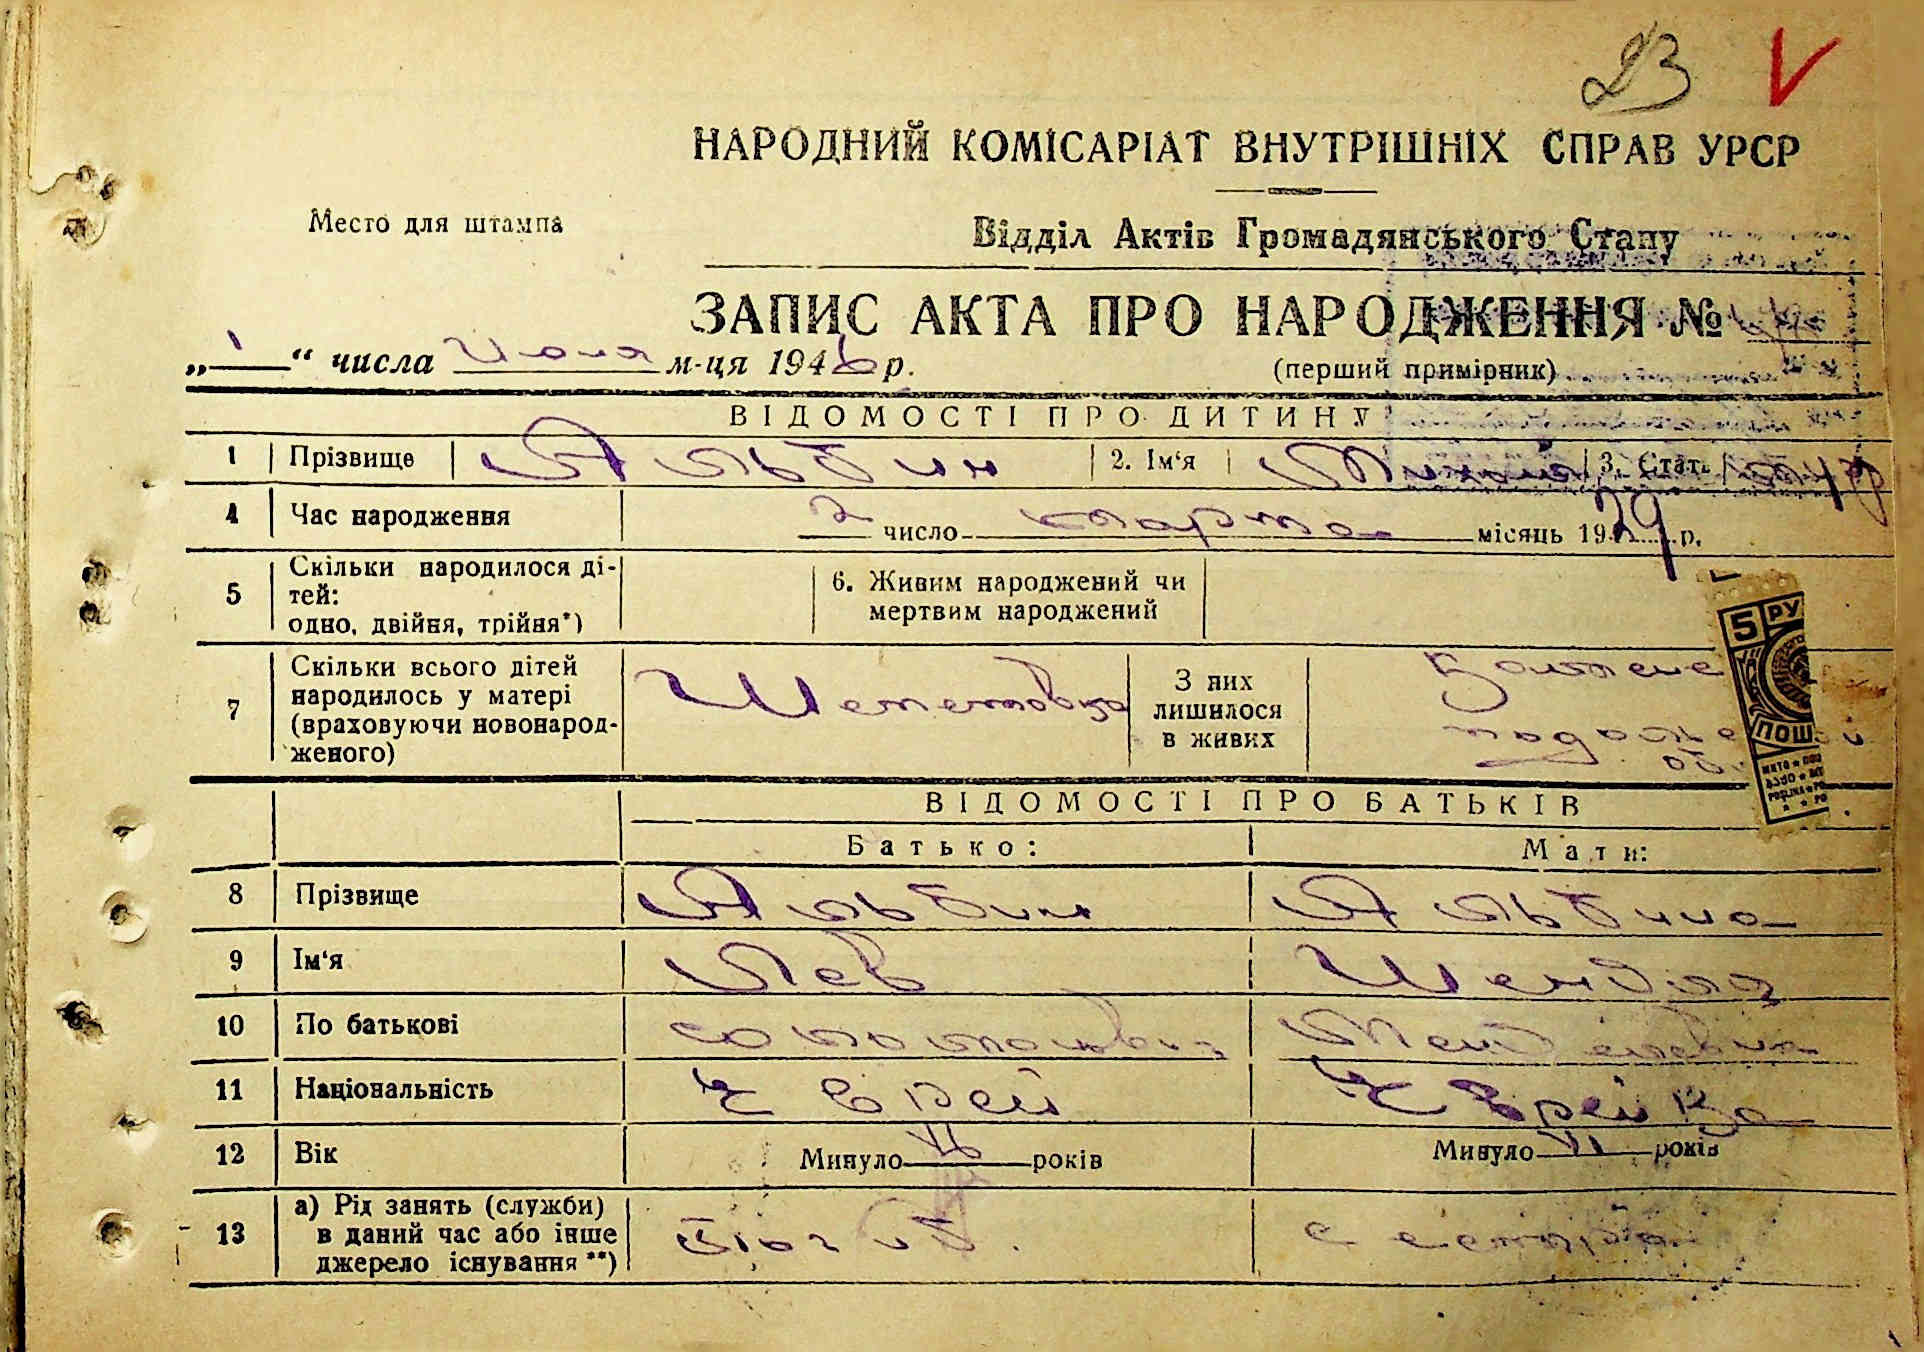 23
НАРОДНИЙ КОМІСАРІАТ ВНУТРІШНІХ СПРАВ УРСР
Место для штампа
Відділ Актів Громадянського Стану
ЗАПИС АКТА ПРО НАРОДЖЕННЯ №
„ 1 “ числа Июля м-ця 1946 р.
(перший примірник)
ВІДОМОСТІ ПРО ДИТИНУ
1 Прізвище Альбин 2. Ім‘я Михаил 3. Стать муж
4 Час народження 2 число марта місяць 1929 р.
5 Скільки народилося ді-
тей:
одно, двійня, трійня*)
6. Живим народжений чи
мертвим народжений
7 Скільки всього дітей
народилось у матері
(враховуючи новонарод-
женого)
Шепетовка
З них
лишилося
в живих
Каменец
подольской
об.
5 РУ
ПОШ
ВІДОМОСТІ ПРО БАТЬКІВ
Батько: Мати:
8 Прізвище Альбин Альбина
9 Ім‘я Лев Шендля
10 По батькові Соломонович Менделевна
11 Національність Еврей Еврейка
12 Вік Минуло років Минуло років
13 а) Рід занять (служби)
в даний час або інше
джерело існування **)
погиб.